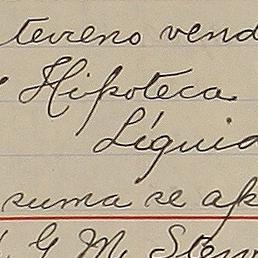 terreno vend
Hipoteca
Líquid
suma se ap
G M. Stew